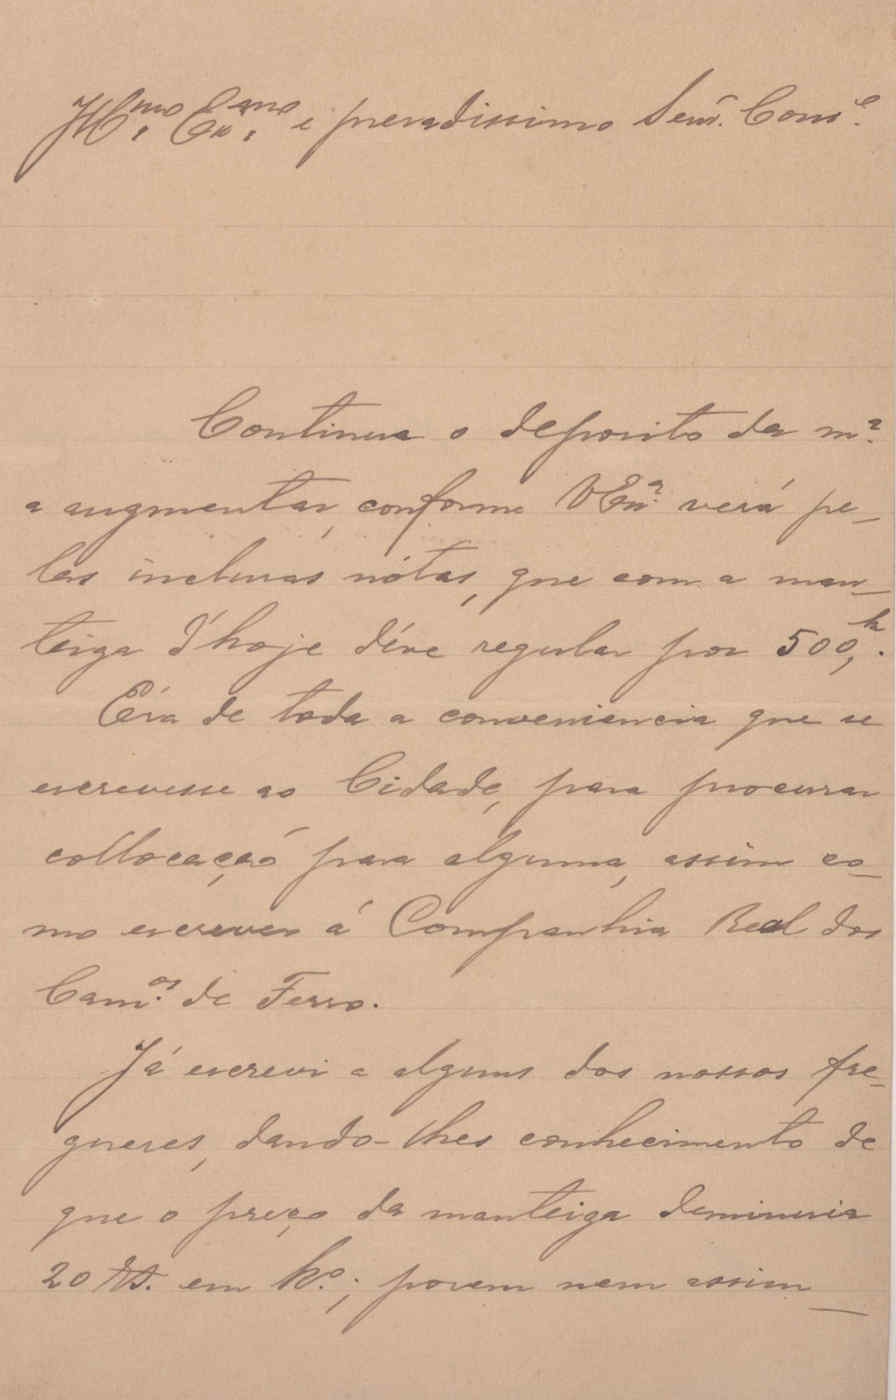 Ill.mo Ex.mo e presadissimo Senr. Cons.e
Continua o deposito da m.a
a augmentar, conforme VEx.a verá pe-
las inclusas nótas, que com a man-
teiga d'hoje déve regular por 500,k.
Éra de toda a conveniencia que se
escrevesse ao Cidade, para procurar
collocação para alguma, assim co-
mo escrever á Companhia Real dos
Cam.os de Ferro.
Já escrevi a alguns dos nossos fre-
gueses, dando-lhes conhecimento de
que o preço da manteiga deminuia
20 rs. em k.o; porem nem assim